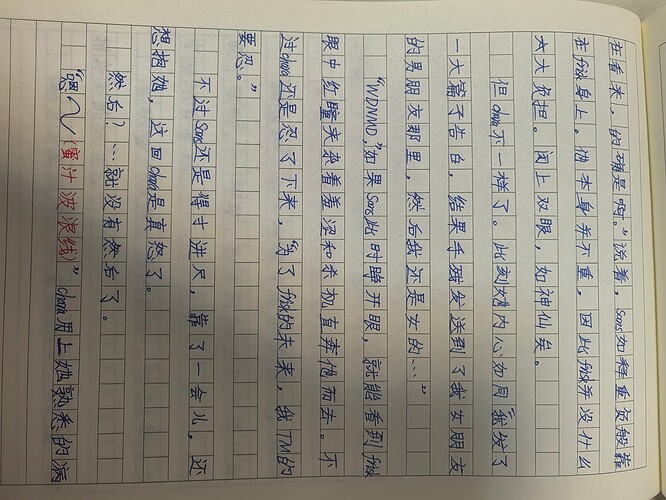 在看来，的确是啊。”说着，Sans如释重负般靠
在frisk身上。他本身并不重，因此frisk并没什么
太大负担。闭上双眼，如神仙矣。
但chara不一样了。此刻她内心如同“我发了
一大篇子告白，结果手残发送到了我女朋友
的男朋友那里，然后我还是女的…”
“WDNMD，”如果Sans此时睁开眼，就能看到frisk
眼中红瞳夹杂着羞涩和杀机直奔他而去。不
过chara还是忍了下来，“为了frisk的未来，我TM的
要忍。”
不过Sans还是得寸进尺，靠了一会儿，还
想抱她，这回chara是真怒了。
然后？…就没有然后了。
“嗯～（蜜汁波浪线”chara用上她熟悉的病